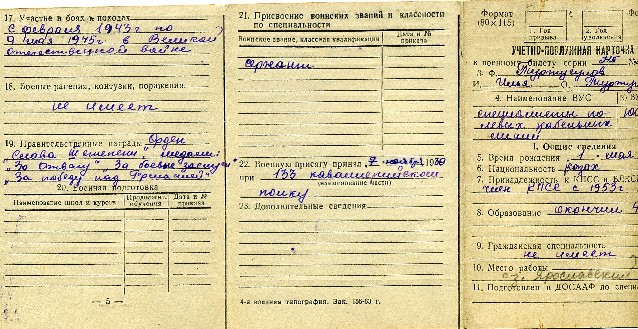 17. Участие в боях и походах
С февраля 1943г по
9 мая 1945г в Великой
Отечественной войне
18. Боевые ранения, контузии, поражения
не имеет
19. Правительственные награды Орден
"Слава III степени", медали:
"За Отвагу", "За боевые заслуги"
"За победу над Германией"
20. Военная подготовка
Наименование школ и курсов
Продолжит. обучения
Дата и № приказа
— 5 —
21. Присвоение воинских званий и классности
по специальности
Воинское звание, классная квалификация
Дата и № приказа
сержант
22. Военную присягу принял 7 ноября
при 133 кавалерийском
(наименование части)
полку
23. Дополнительные сведения
4-я военная типография. Зак. 156-63 г.
Формат
(80×115)
1. Год
призыва
2. Год
УЧЕТНО-ПОСЛУЖНАЯ КАРТОЧКА
к военному билету серии НБ №
3. Ф.
И. Илья О.
4. Наименование ВУС
специалисты по
левых кабельных
линий
I. Общие сведения
5. Время рождения 1 мая
6. Национальность казах
7. Принадлежность к КПСС и
член КПСС с 1953г
8. Образование окончил 4
9. Гражданская специальность
не имеет
10. Место работы
Ярославский
11. Подготовлен в ДОСААФ по